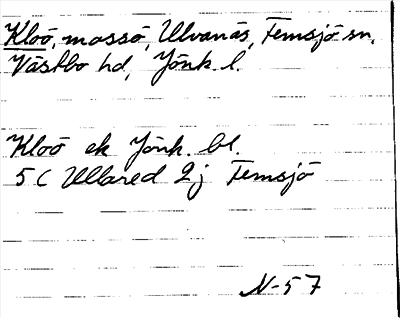 Kloö, mossö, Ulvanäs, Femsjö sn,
Västbo hd, Jönk. l.
Kloö ek Jönk. bl.
5 C Ullared 2 j Femsjö
N-57